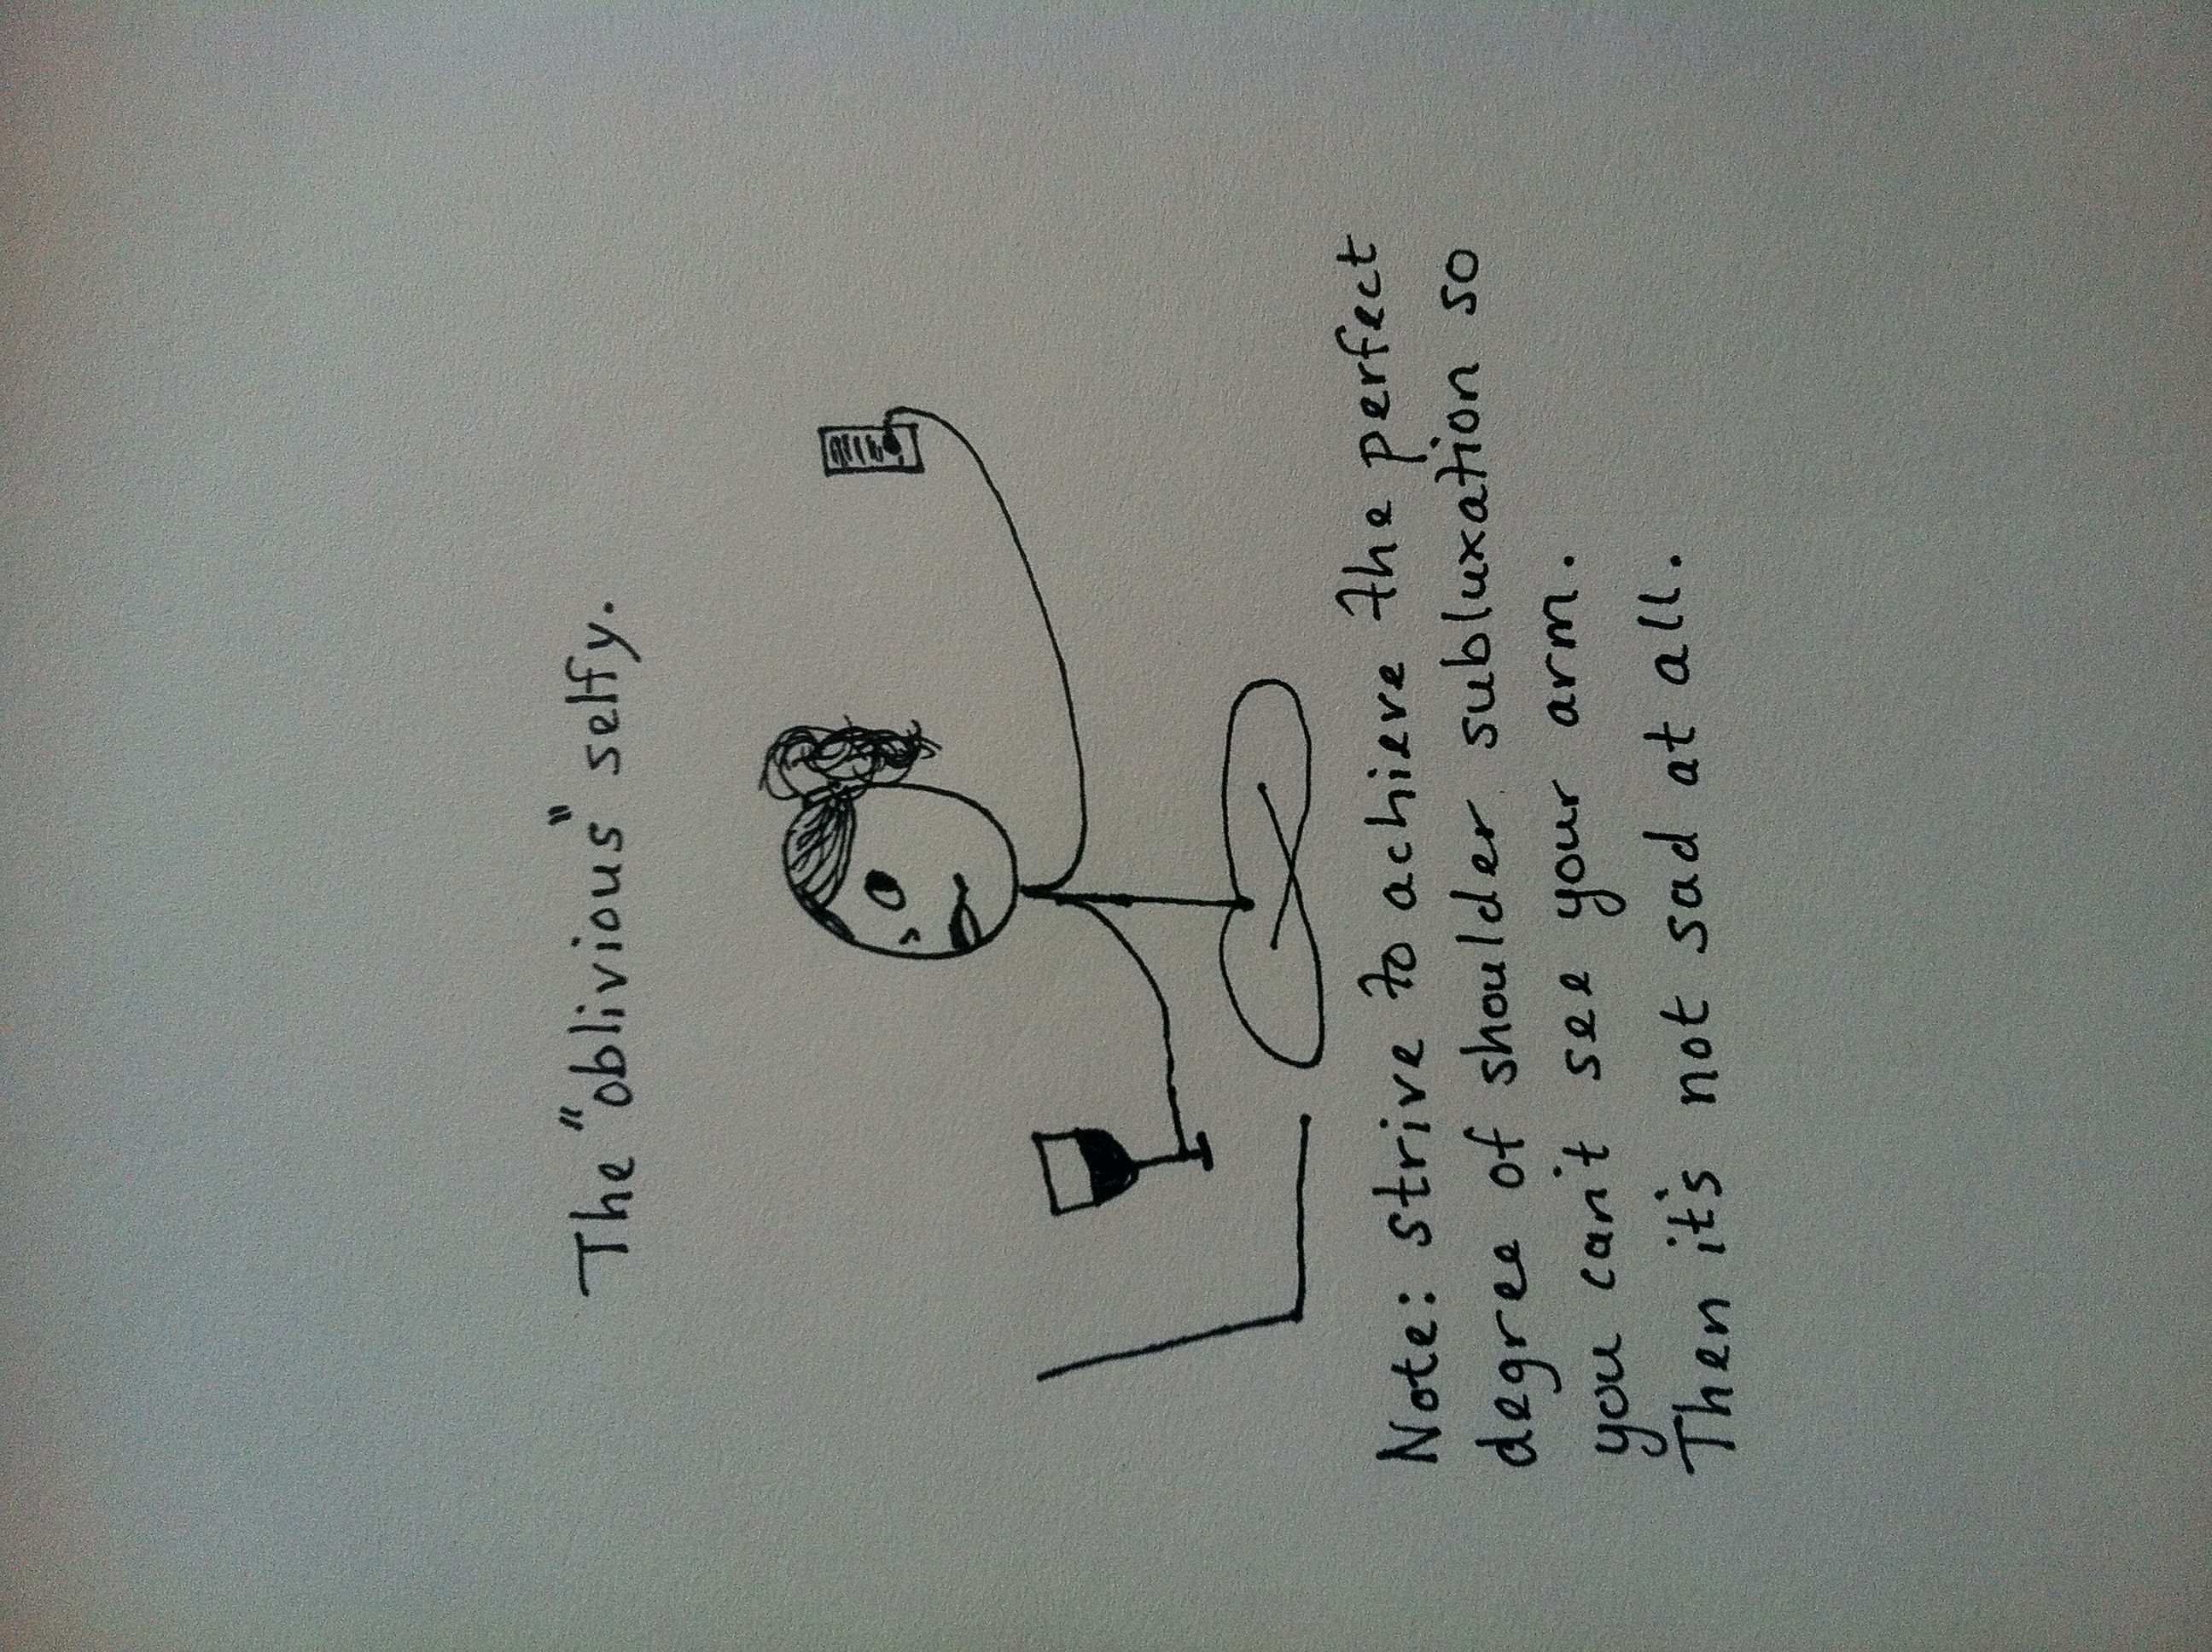 The "oblivious" selfy.
Note: strive to achieve the perfect
degree of shoulder subluxation so
you can't see your arm.
Then it's not sad at all.